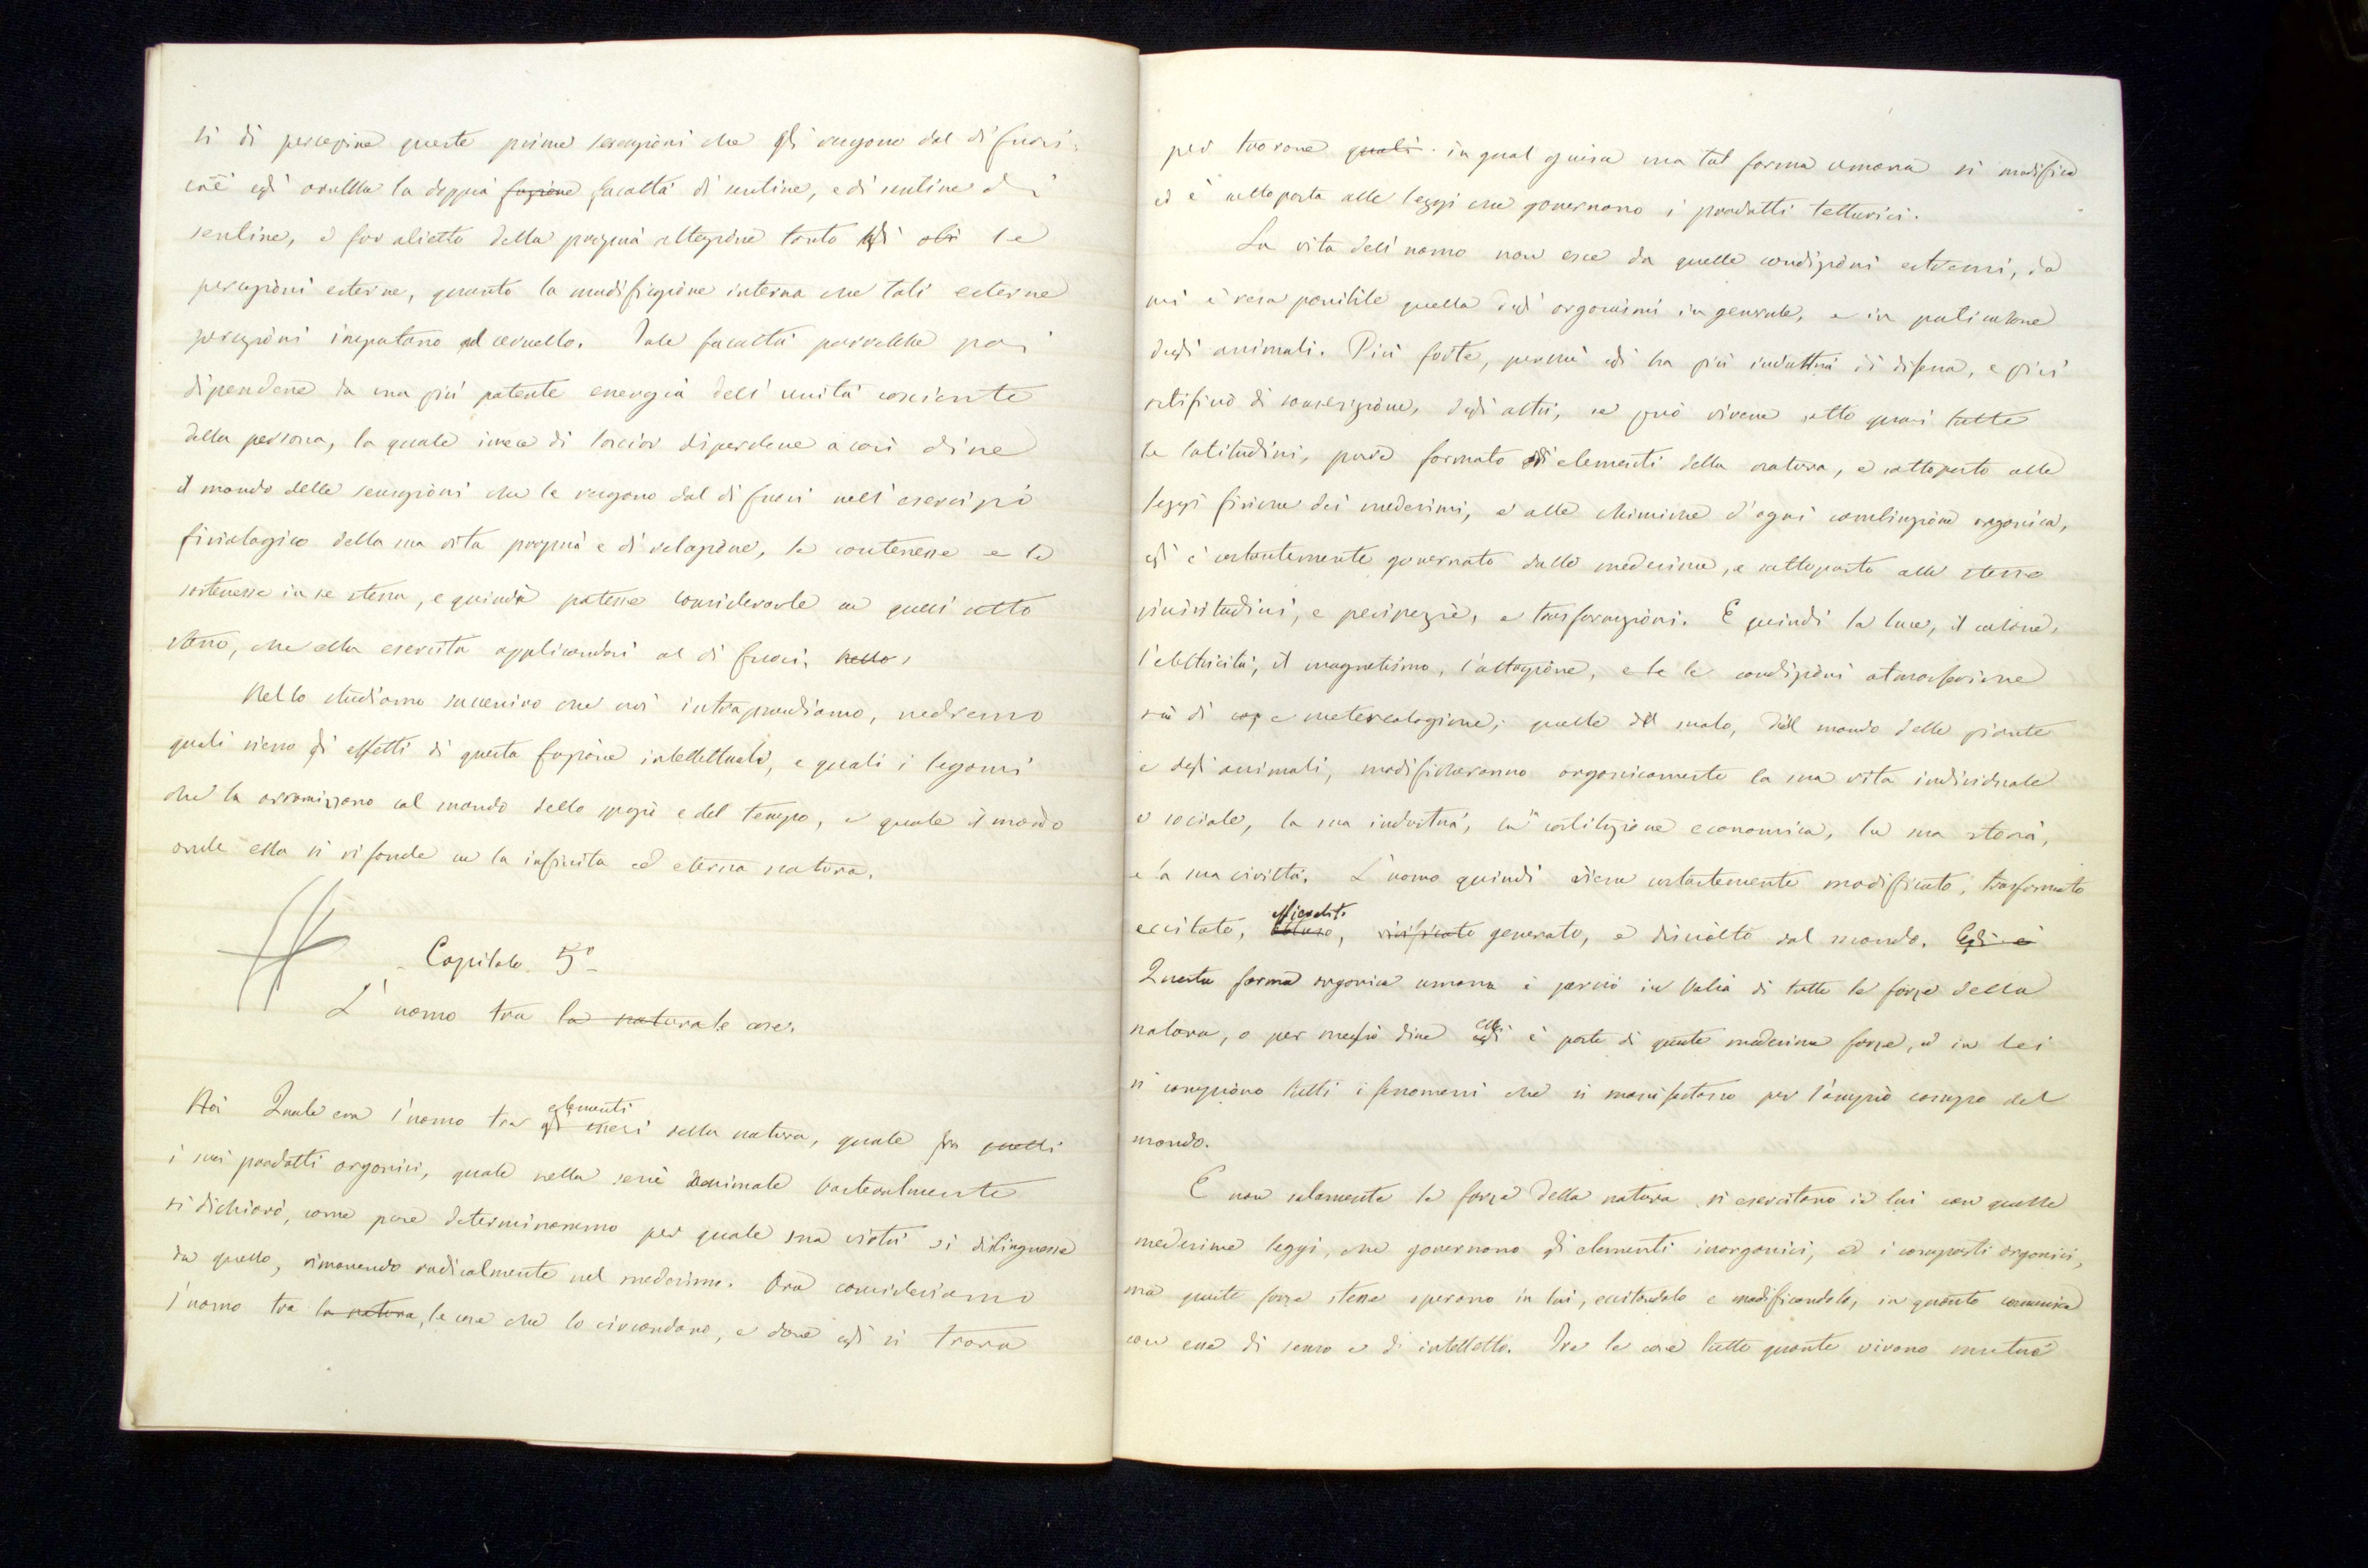 ti di percepire queste prime sensazioni che gli vengono dal di fuori;
cioè egli avrebbe la doppia fazione facoltà di sentire, e di sentire di
sentire, e far obietto della propria attenzione tanto le
percezioni esterne, quanto la modificazione interna che tali esterne
percezioni inputano al cervello. Tale facoltà parrebbe poi
dipendere da una più potente energia dell'unità cosciente
della persona, la quale invece di lasciar disperdere a così dire
il mondo delle sensazioni che le vengono dal di fuori nell'esercizio
fisiologico della sua vita propria e di relazione, le contenesse e le
sostenesse in se stessa, e quindi potesse considerarle in quell'atto
stesso, che ella esercita applicandosi al di fuori. Nello
Nello studiamo successivo che noi intraprendiamo, vedremo
quali sieno gli effetti di questa fazione intellettuale, e quali i legami
che la armonizzano col mondo dello spazio e del tempo, e quale il modo
onde ella si rifonde in la infinita ed eterna natura.
Capitolo 5°
L'uomo tra la naturale cose.
Noi Quale era l'uomo tra gli esseri elementi della natura, quale fra quelli
i suoi prodotti organici, quale nella serie animale bastevolmente
si dichiarò, come pure determinammo per quale sua virtù si distinguesse
da quello, rimanendo radicalmente nel medesimo. Ora consideriamo
l'uomo tra la natura, le cose che lo circondano, e dove egli si trova
per trovare quali in qual guisa una tal forma umana si modifica
ed è sottoposta alle leggi che governano i prodotti tellurici.
La vita dell'uomo non esce da quelle condizioni estremi, da
cui è resa possibile quella degli organismi in generale, e in particolare
degli animali. Più forte, perché egli ha più industria di difesa, e più
artificio di conservazione, degli altri, se può vivere sotto quasi tutte
le latitudini, pure formato di elementi della natura, e sottoposto alle
leggi fisiche dei medesimi, e alle chimiche d'ogni combinazione organica,
egli è costantemente governato dalle medesime, e sottoposto alle stesse
vicissitudini, e peripezie, e trasformazioni. E quindi la luce, il calore,
l'elettricità, il magnetismo, l'attrazione, e le condizioni atmosferiche
metereologiche; quelle del suolo, del mondo delle piante
e degli animali, modificheranno organicamente la sua vita individuale
e sociale, la sua industria, la costituzione economica, la sua storia,
e la sua civiltà. L'uomo quindi viene costantemente modificato, trasformato
eccitato, affievolito, vivificato generato, e disciolto dal mondo. Egli è
Questa forma organica umana è perciò in balia di tutte le forze della
natura, o per meglio dire ella è parte di queste medesime forze, e in lei
si compiono tutti i fenomeni che si manifestano per l'ampio campo del
mondo.
E non solamente le forze della natura si esercitano in lui con quelle
medesime leggi, che governano gli elementi inorganici, ed i composti organici,
ma queste forze stesse operano in lui, eccitandolo e modificandolo, in quanto comunica
con esse di senso e di intelletto. Tra le cose tutte quante vivono mutue